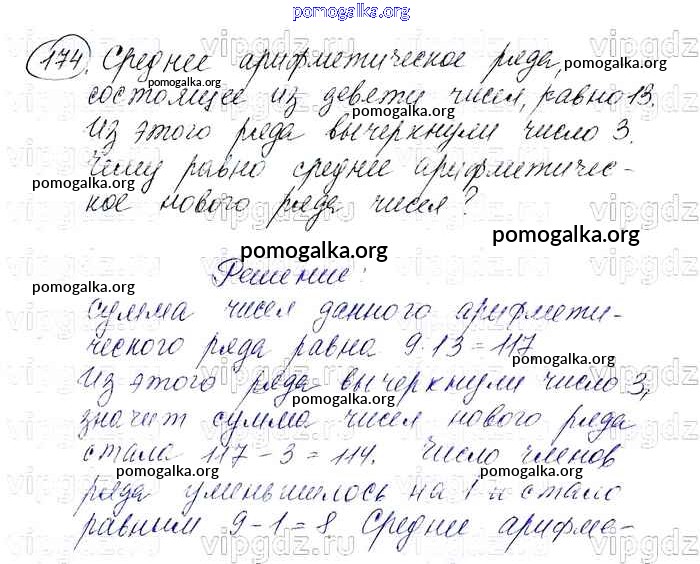 pomogalka.org
174. Среднее арифметическое ряда,
pomogalka.org pomogalka.org
состоящее из девяти чисел, равно 13.
pomogalka.org
Из этого ряда вычеркнули число 3.
Чему равно среднее арифметичес-
pomogalka.org
кое нового ряда чисел?
pomogalka.org
pomogalka.org
Решение:
pomogalka.org
сумма чисел данного арифмети-
ческого ряда равна 9·13=117
pomogalka.org
Из этого ряда вычеркнули число 3,
pomogalka.org
значит сумма чисел нового ряда
стала 117-3=114. Число членов
pomogalka.org pomogalka.org
ряда уменьшилось на 1 и стало
pomogalka.org
равным 9-1=8 Среднее арифме-
pomogalka.org
vipgdz